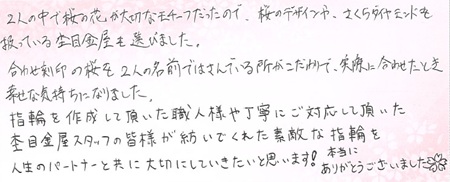 2人の中で桜の花が大切なモチーフだったので、桜のデザインや、さくらダイヤモンドを
扱っている杢目金屋を選びました。
合わせ刻印の桜を2人の名前ではさんでいる所がこだわりで、実際に合わせたとき
幸せな気持ちになりました。
指輪を作成して頂いた職人様や丁寧にご対応して頂いた
杢目金屋スタッフの皆様が紡いでくれた素敵な指輪を
人生のパートナーと共に大切にしていきたいと思います！本当に
ありがとうございました